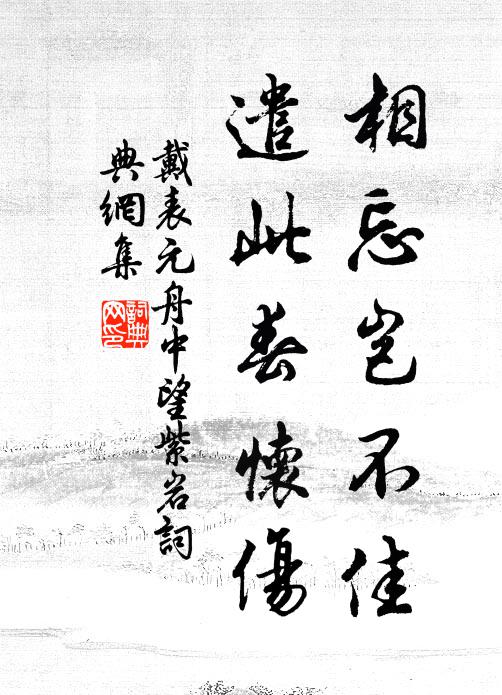 相忘岂不佳
遣此春懷傷
戴表元舟中望紫岩詞
典網集
詞典
网印